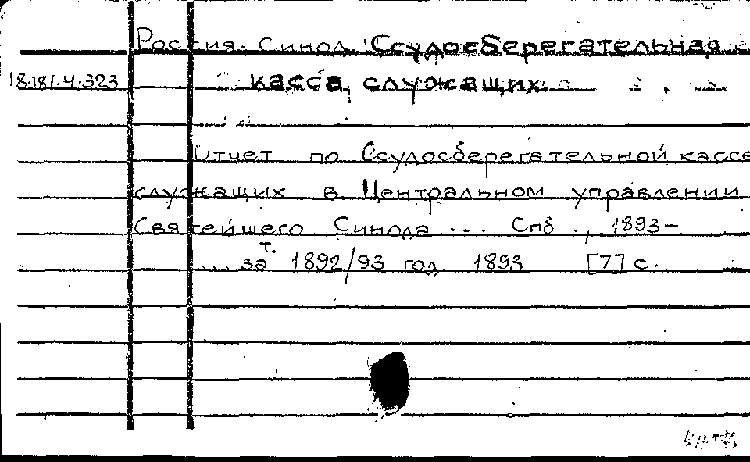 Россия. Синод. Ссудосберегательная
18.181.4.323
касса служащих
Отчет по Ссудосберегательной кассе
служащих в Центральном управлении
Святейшего Синода ... Спб., 1893-
... за т. 1892/93 год 1893 [7] с.